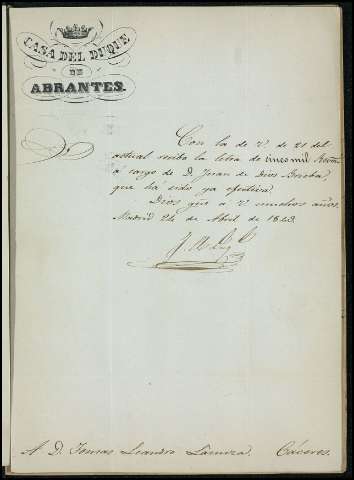 CASA DEL DUQUE
DE
ABRANTES.
Con la de V. de 21 del
actual recibo la letra de mil
a cargo de D. Juan de Dios
que há sido ya efectiva.
Dios gue a V. muchos años.
Madrid 24 de Abril de
A D. Tomas Leandro Cáceres.